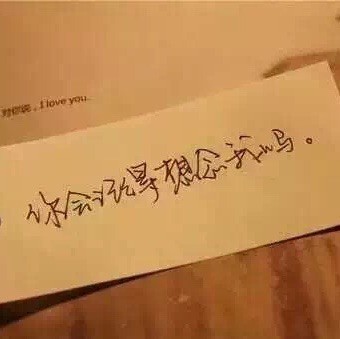 对你说，I love you.
你会记得想念我吗。